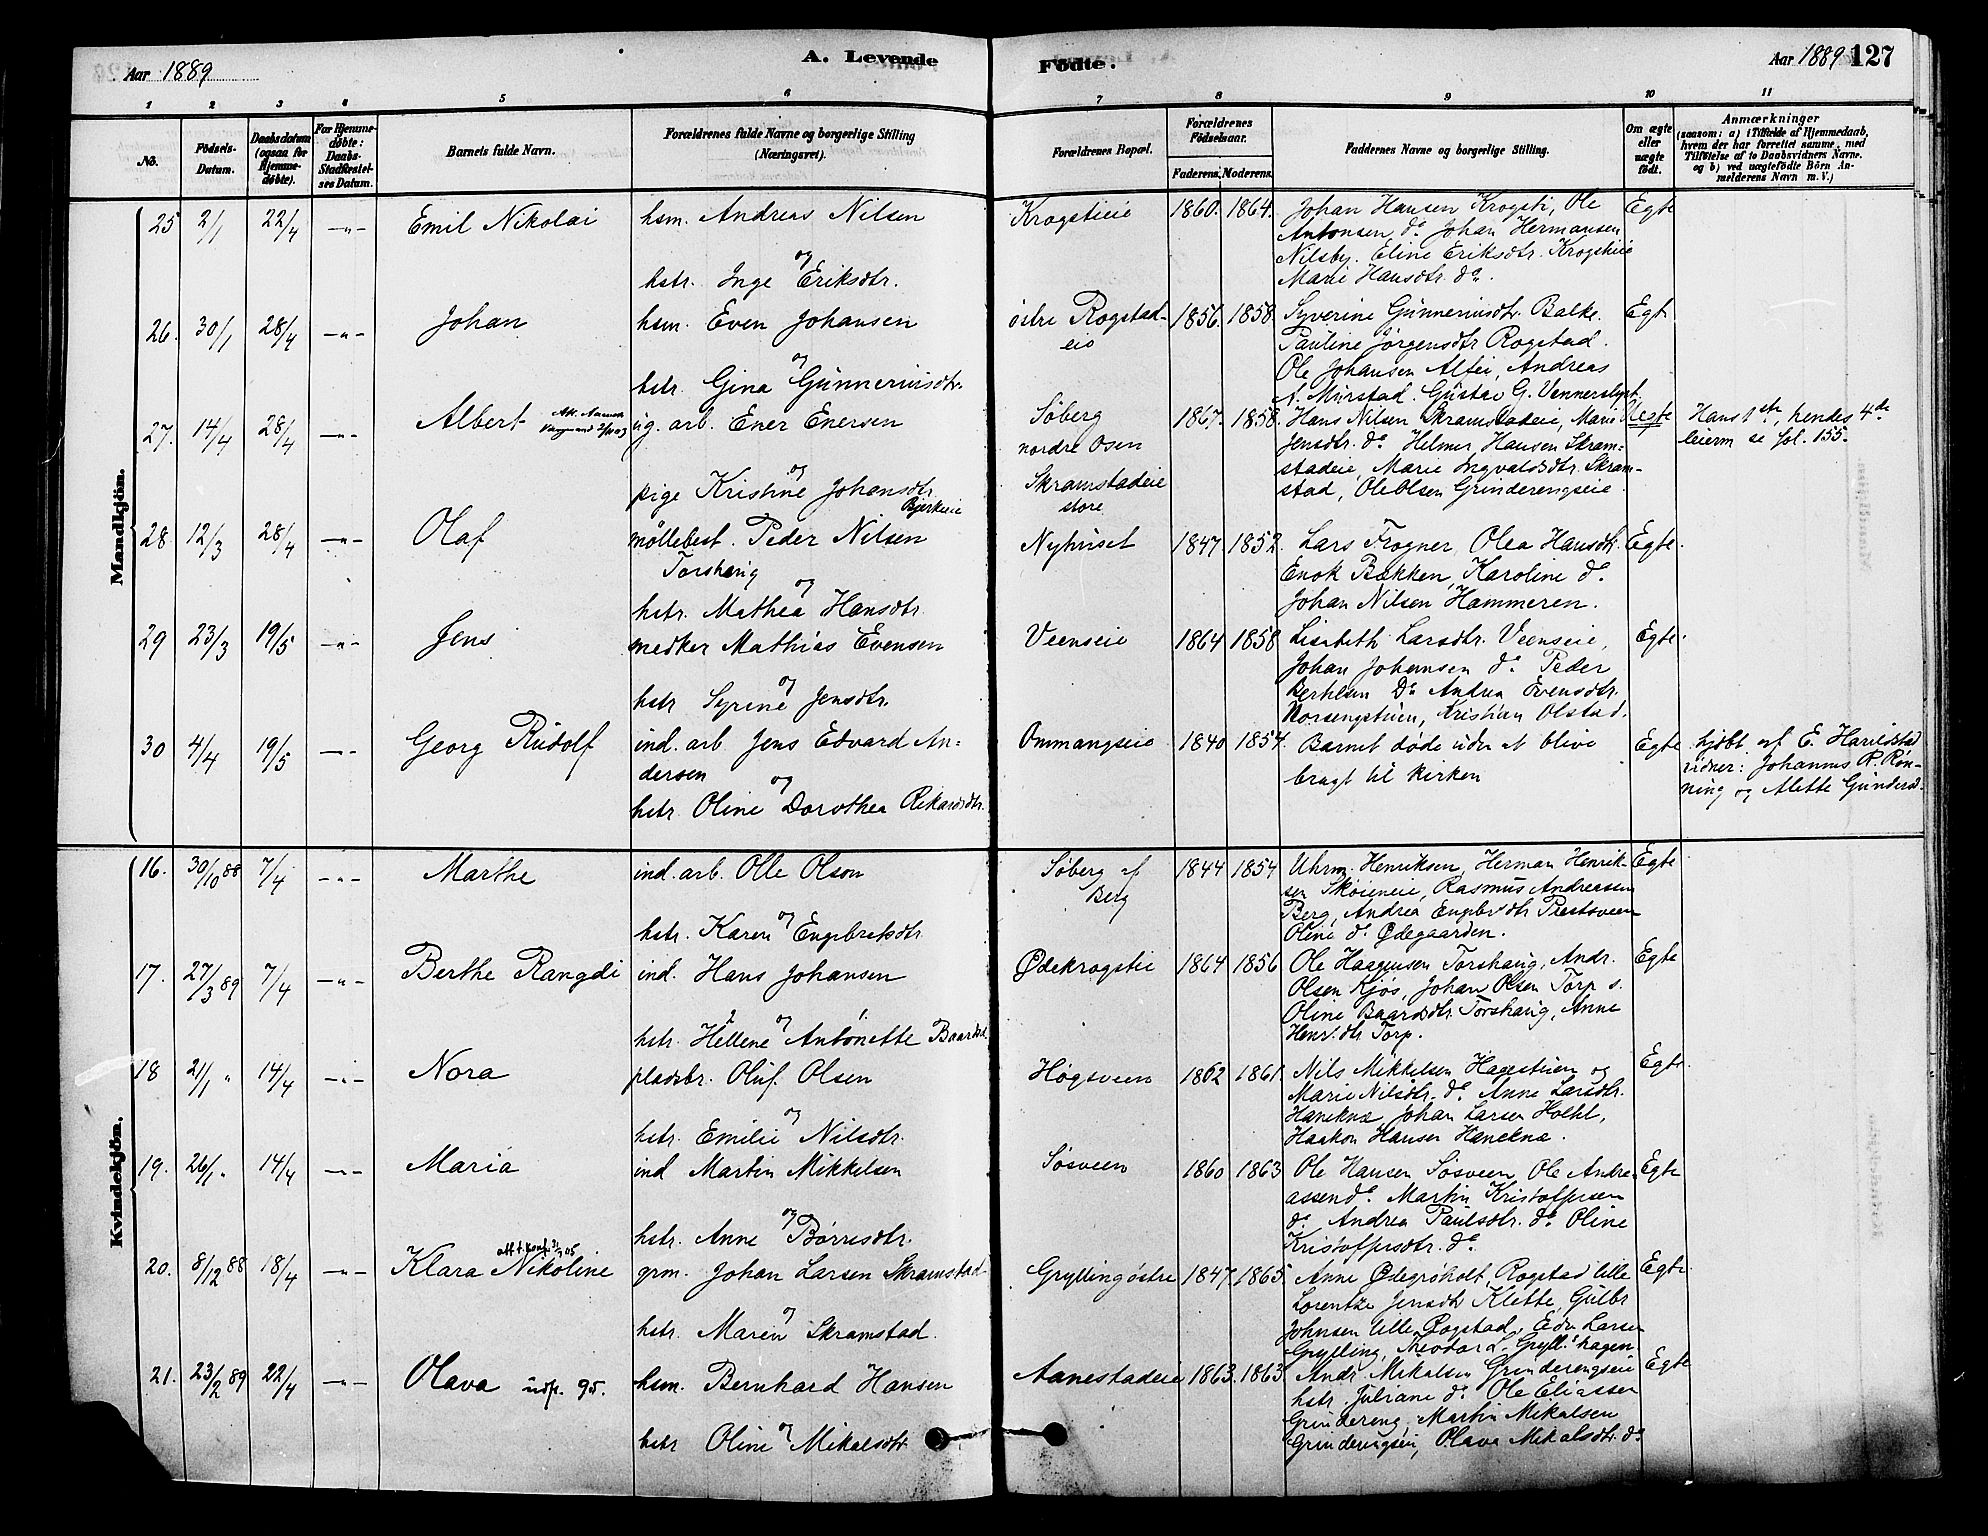 Aar 1889
A. Levende
Fødte.
Aar 1889 127
1 2 3 4 5 6 7 8 9 10 11
No.
Fødsels-Datum.
Daabsdatum (ogsaa for Hjemme-døbte).
For Hjemme-døbte: Daabs-Stadfæstel-ses Datum.
Barnets fulde Navn.
Forældrenes fulde Navne og borgerlige Stilling (Næringsvei).
Forældrenes Bopæl.
Forældrenes Fødselsaar.
Faderens. Moderens.
Faddernes Navne og borgerlige Stilling.
Om ægte eller uægte født.
Anmærkninger (saasom: a) i Tilfælde af Hjemmedaab, hvem der har forrettet samme, med Tilføielse af to Daabsvidners Navne, og b) ved uægtefødte Børn Anmelderens Navn m. V.)
Mandkjön.
25 2/1 22/4 -"- Emil Nikolai hsm. Andreas Nilsen
og
hstr. Inge Eriksdtr.
Krogstieie 1860. 1864. Johan Hansen Krogsti, Ole
Antonsen do Johan Hermansen
Nilsby. Eline Eriksdtr. Krogstieie
Marie Hansdtr. do.
Egte
26. 30/1 28/4 -"- Johan hsm. Even Johansen
og
hstr. Gina Gunneriusdtr.
östre Rogstad-
eie
1856. 1858. Syverine Gunneriusdtr. Balke.
Pauline Jörgensdtr Rogstad.
Ole Johansen Alfei, Andreas
A. Murstad. Gustav G. Vennerslyst
Egt.
27. 14/4 28/4 -"- Albert ug. arb. Ener Enersen
og
pige Kristine Johansdtr
Bjerkeie
Søberg
nordre Osen
Skramstadeie
store
1867. 1858. Hans Nilsen Skramstadeie, Marie
Jensdtr. do Helmer Hansen Skram-
stadeie, Marie Ingvaldsdtr. Skram-
stad, Ole Olsen Grinderengseie
Uegte
Hans 1ste, hendes 4de
leierm se fol. 155.
28. 12/3 28/4 -"- Olaf möllebest. Peder Nilsen
Torshaug
og
hstr. Mathea Hansdtr.
Nyhuset 1847. 1852. Lars Frogner, Olea Hansdtr.
Enok Bækken, Karoline do.
Johan Nilsen Hammeren.
Egte.
29 23/3 19/5 -"- Jens snedker Mathias Evensen
og
hstr Syrine Jensdtr.
Veenseie 1864 1858 Lisabeth Larsdtr. Veenseie,
Johan Johansen do. Peder
Bertelsen Do Andrea Evensdtr.
Norsengstuen, Kristian Olstad.
Egte.
30 4/4 19/5 -"- Georg Rudolf ind. arb. Jens Edvard An-
dersen
og
hstr. Oline Dorothea Rikardsdtr.
Ommangseie 1840 1854. Barnet døde uden at blive
bragt til kirken
Egte
hjdbt af E. Harildstad
vidner: Johannes R. Røn-
ning og Alette Gundersd.
Kvindekjön.
16. 30/10 88 7/4 -"- Marthe ind. arb. Olle Olsen
og
hstr. Karen Engebretsdtr.
Søberg af
Berg
1844 1854 Uhrm. Henriksen, Herman Henrik-
sen Skøieneie, Rasmus Andreasen
Berg, Andrea Engebrdtr Prestsveen
Oline do. Ødegaarden.
Egte
17. 27/3 89 7/4 -"- Berthe Rangdi ind. Hans Johansen
og
hstr. Hellene Antonette Baardsd.
Ødekrogstie 1864 1856 Ole Haagensen Torshaug, Andr.
Olsen Kjøs, Johan Olsen Torp s.
Oline Baardsdtr. Torshaug, Anne
Henr.dtr Torp.
Egte
18 21/1 " 14/4 -"- Nora pladsbr. Oluf Olsen
og
hstr. Emilie Nilsdtr.
Høgsveen 1862 1861. Nils Mikkelsen Hagestuen og
Marie Nilsdtr. do Anne Larsdtr.
Haneknæ Johan Larsen Hoell,
Haakon Hansen Haneknæ.
Egte.
19. 26/1 " 14/4 -"- Maria ind Martin Mikkelsen
og
hstr. Anne Børresdtr.
Søsveen 1860 1863 Ole Hansen Søsveen, Ole Andre-
assen do. Martin Kristoffersen
do. Andrea Paulsdtr. do Oline
Kristoffersdtr. do
Egte
20. 8/12 88 18/4 -"- Klara Nikoline grm. Johan Larsen Skramstad-
og
hstr. Maren Skramstad.
Grylling östre 1847. 1865. Anne Ødegroholt, Rogstad lille
Lorentze Jensdtr Klette, Gulbr
Johnsen lille Rogstad, Edv Larsen
Grylling, Theodor L. Gryll.hagen.
Egte
21. 23/2 89 22/4 -"- Olava indp. 95. hsm. Bernhard Hansen
og
hstr Oline Mikalsdtr.
Aanestadeie 1863. 1863. Andr Mikalsen Grinderengseie
hstr Juliane do Ole Eliassen
Grindereng. Martin Mikalsen
Grinderengseie, Olava Mikalsdtr. do
Egte